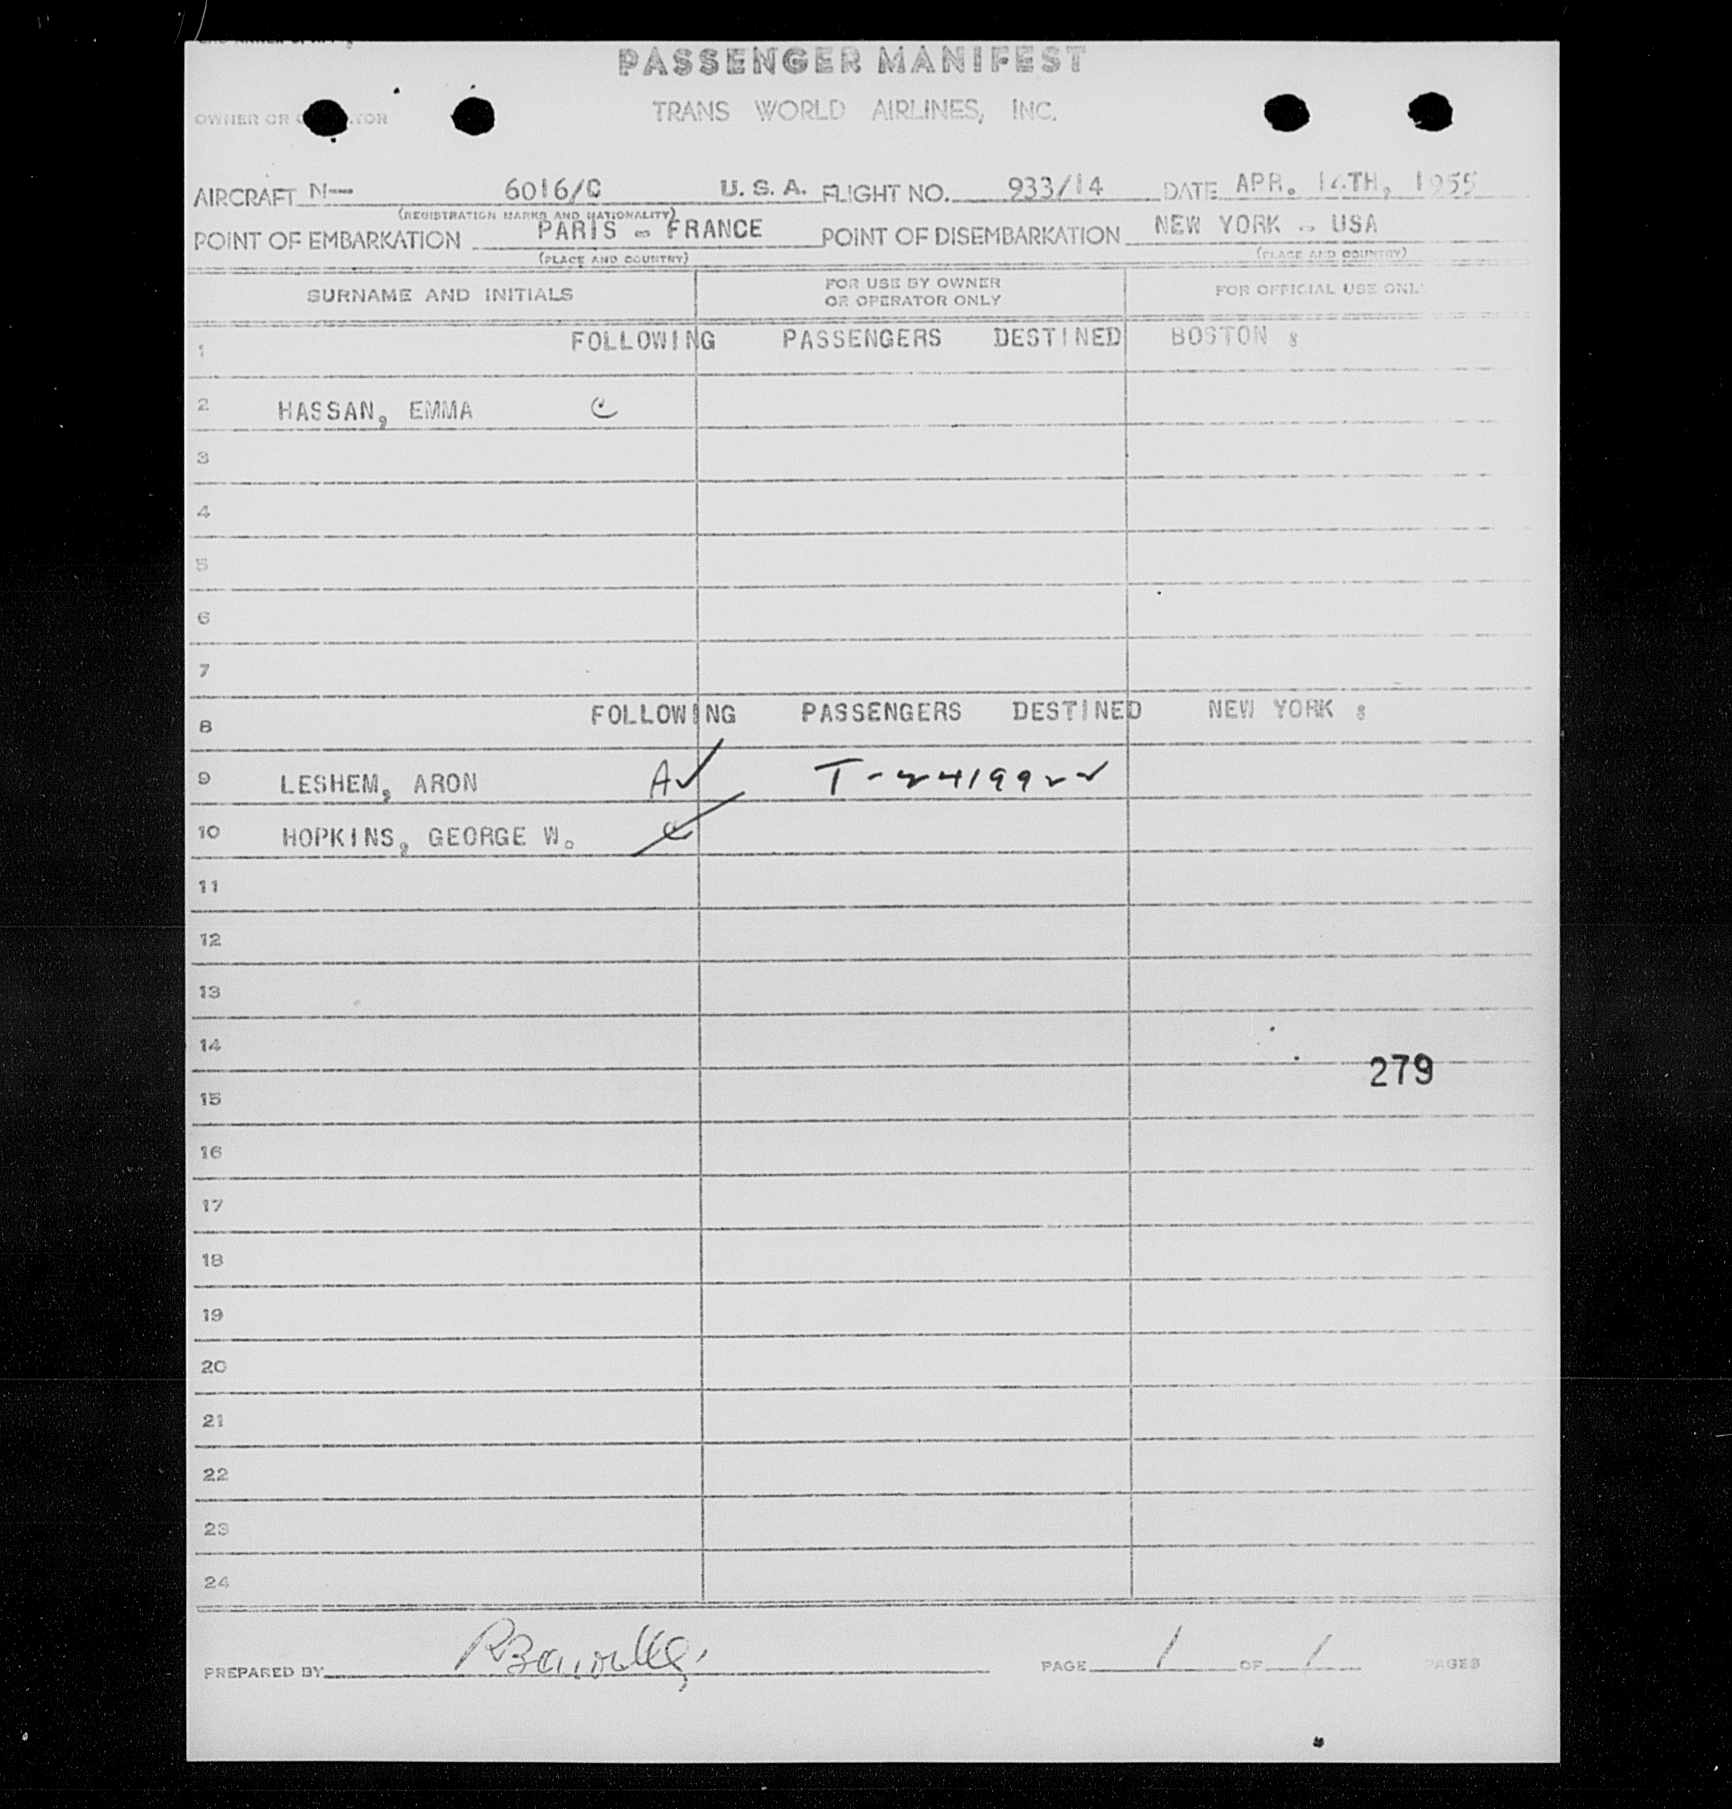 PASSENGER MANIFEST
OWNER OR
TRANS WORLD AIRLINES, INC.
AIRCRAFT N-- 6016/C U. S. A. FLIGHT NO. 933/14 DATE APR. 14TH, 1955
(REGISTRATION MARKS AND NATIONALITY)
POINT OF EMBARKATION PARIS - FRANCE POINT OF DISEMBARKATION NEW YORK - USA
(PLACE AND COUNTRY) (PLACE AND COUNTRY)
SURNAME AND INITIALS FOR USE BY OWNER OR OPERATOR ONLY FOR OFFICIAL USE ONL
1 FOLLOWING PASSENGERS DESTINED BOSTON :
2 HASSAN, EMMA C
3
4
5
6
7
8 FOLLOWING PASSENGERS DESTINED NEW YORK :
9 LESHEM, ARON A✓ T-2419922
10 HOPKINS, GEORGE W. C
11
12
13
14
279
15
16
17
18
19
20
21
22
23
24
PREPARED BY PAGE 1 OF 1 PAGES